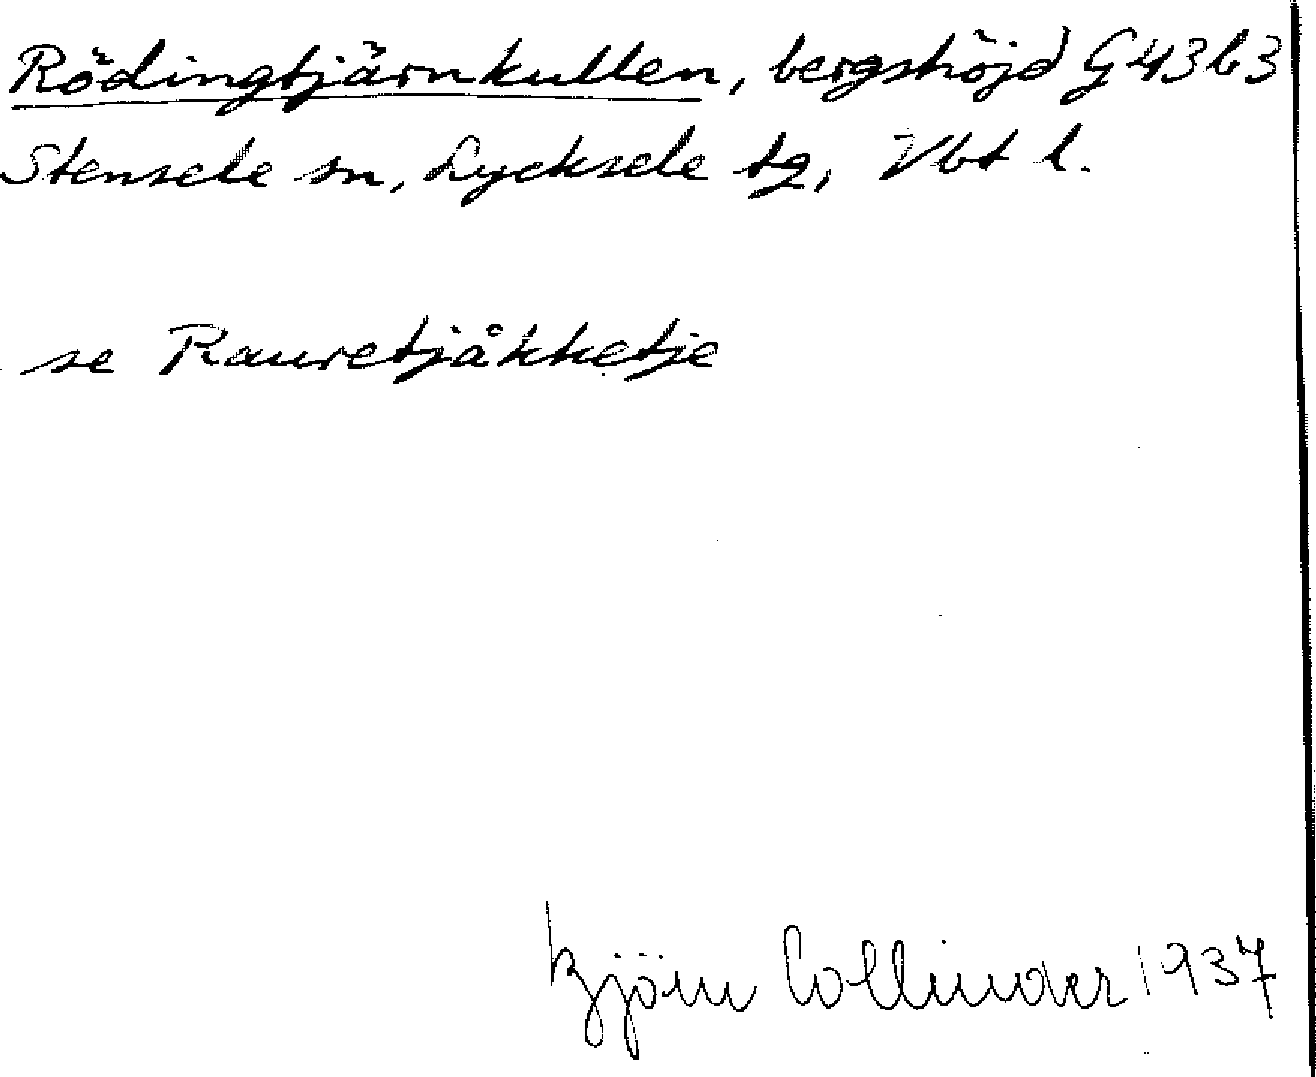 Rödingtjärnkullen, bergshöjd G43b3
Stensele sn, Lycksele tg, Vbt l.
se Rauretjåkketje
Björn Collinder 1937